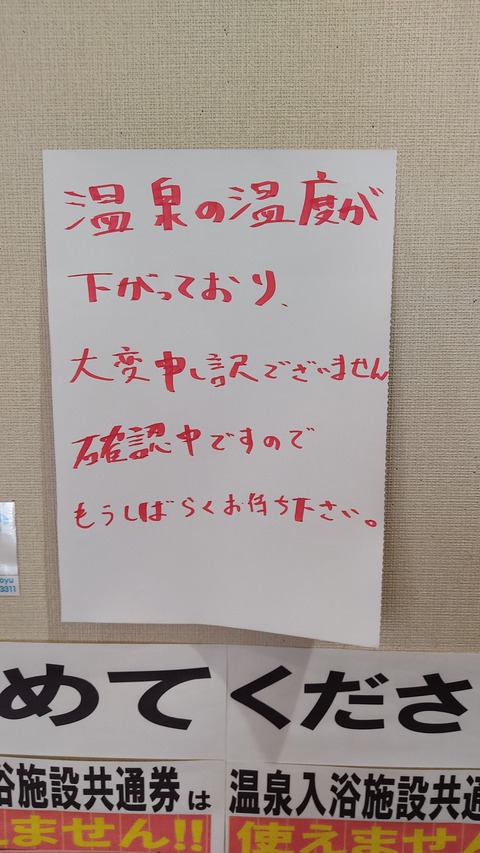 温泉の温度が
下がっており、
大変申し訳でございません
確認中ですので
もうしばらくお待ち下さい。
oyu
3311
めてくださ
浴施設共通券は
ません!!
温泉入浴施設共通
使えません